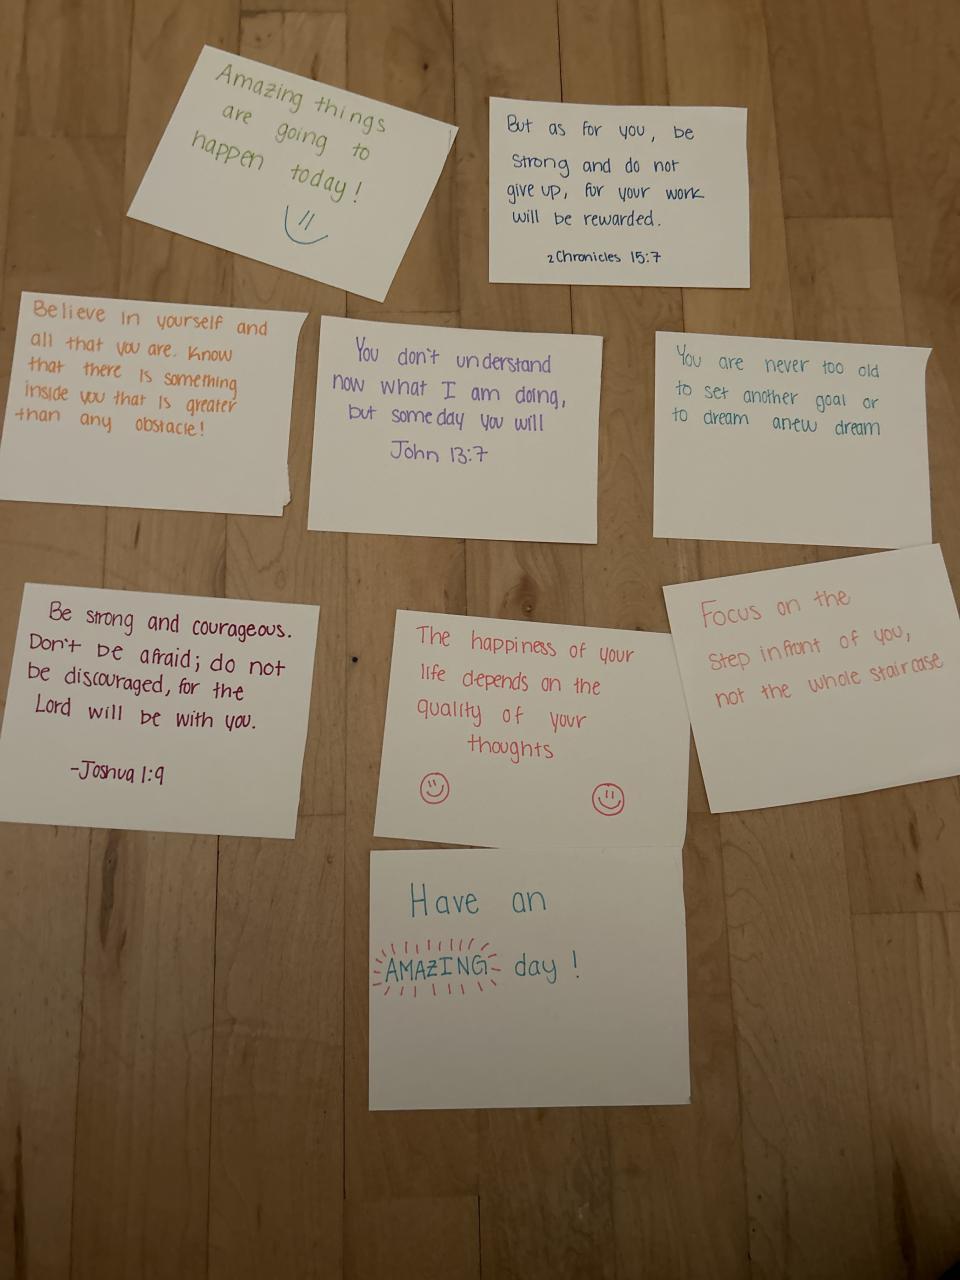 Amazing things
are going to
happen today!
But as for you, be
strong and do not
give up, for your work
will be rewarded.
2 Chronicles 15:7
Believe in yourself and
all that you are. Know
that there is something
inside you that is greater
than any obstacle!
You don't understand
now what I am doing,
but someday you will
John 13:7
You are never too old
to set another goal or
to dream anew dream
Be strong and courageous.
Don't be afraid; do not
be discouraged, for the
Lord will be with you.
-Joshua 1:9
The happiness of your
life depends on the
quality of your
thoughts
Focus on the
step infront of you,
not the whole staircase
Have an
AMAZING day!